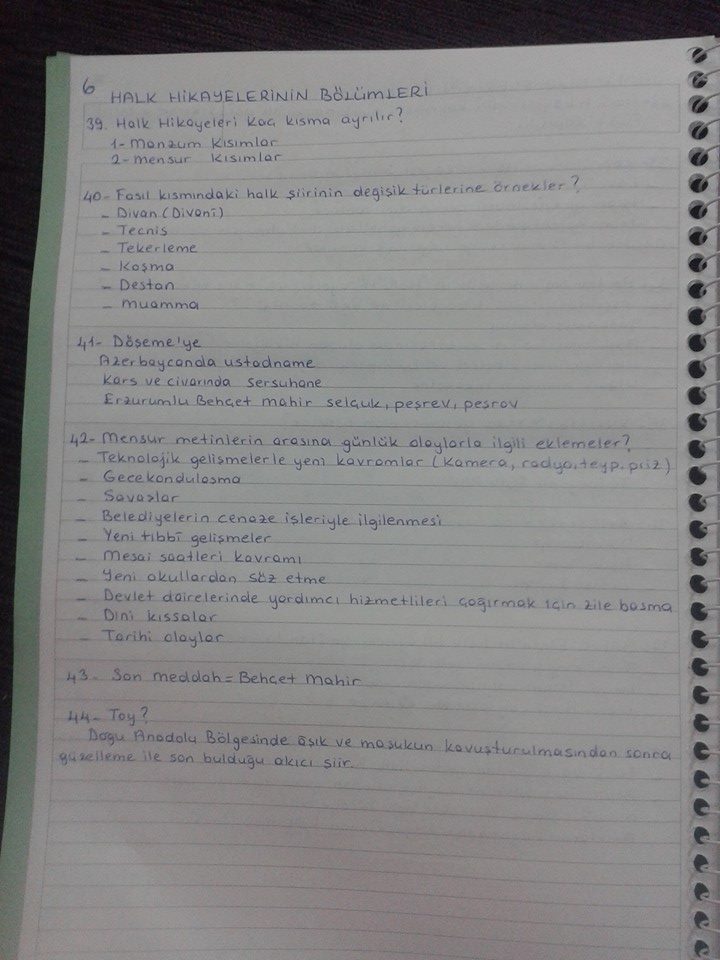 6 HALK HİKAYELERİNİN BÖLÜMLERİ
39. Halk Hikayeleri kaç kısma ayrılır?
1- Manzum kısımlar
2- mensur kısımlar
40- Fasıl kısmındaki halk şiirinin değişik türlerine örnekler?
- Divan (Divani)
- Tecnis
- Tekerleme
- Koşma
- Destan
- muamma
41- Döşeme'ye
Azerbaycanda ustadname
Kars ve civarında sersuhane
Erzurumlu Behçet mahir selçuk, peşrev, peşrov
42- Mensur metinlerin arasına günlük olaylarla ilgili eklemeler?
- Teknolojik gelişmelerle yeni kavramlar (kamera, radyo, teyp, priz)
- Gecekondulaşma
- Savaşlar
- Belediyelerin cenaze işleriyle ilgilenmesi
- Yeni tıbbî gelişmeler
- Mesai saatleri kavramı
- Yeni okullardan söz etme
- Devlet dairelerinde yardımcı hizmetlileri çağırmak için zile basma
- Dini kıssalar
- Tarihi olaylar
43- Son meddah = Behçet Mahir
44- Toy?
Doğu Anadolu Bölgesinde âşık ve maşukun kavuşturulmasından sonra
güzelleme ile son bulduğu akıcı şiir.